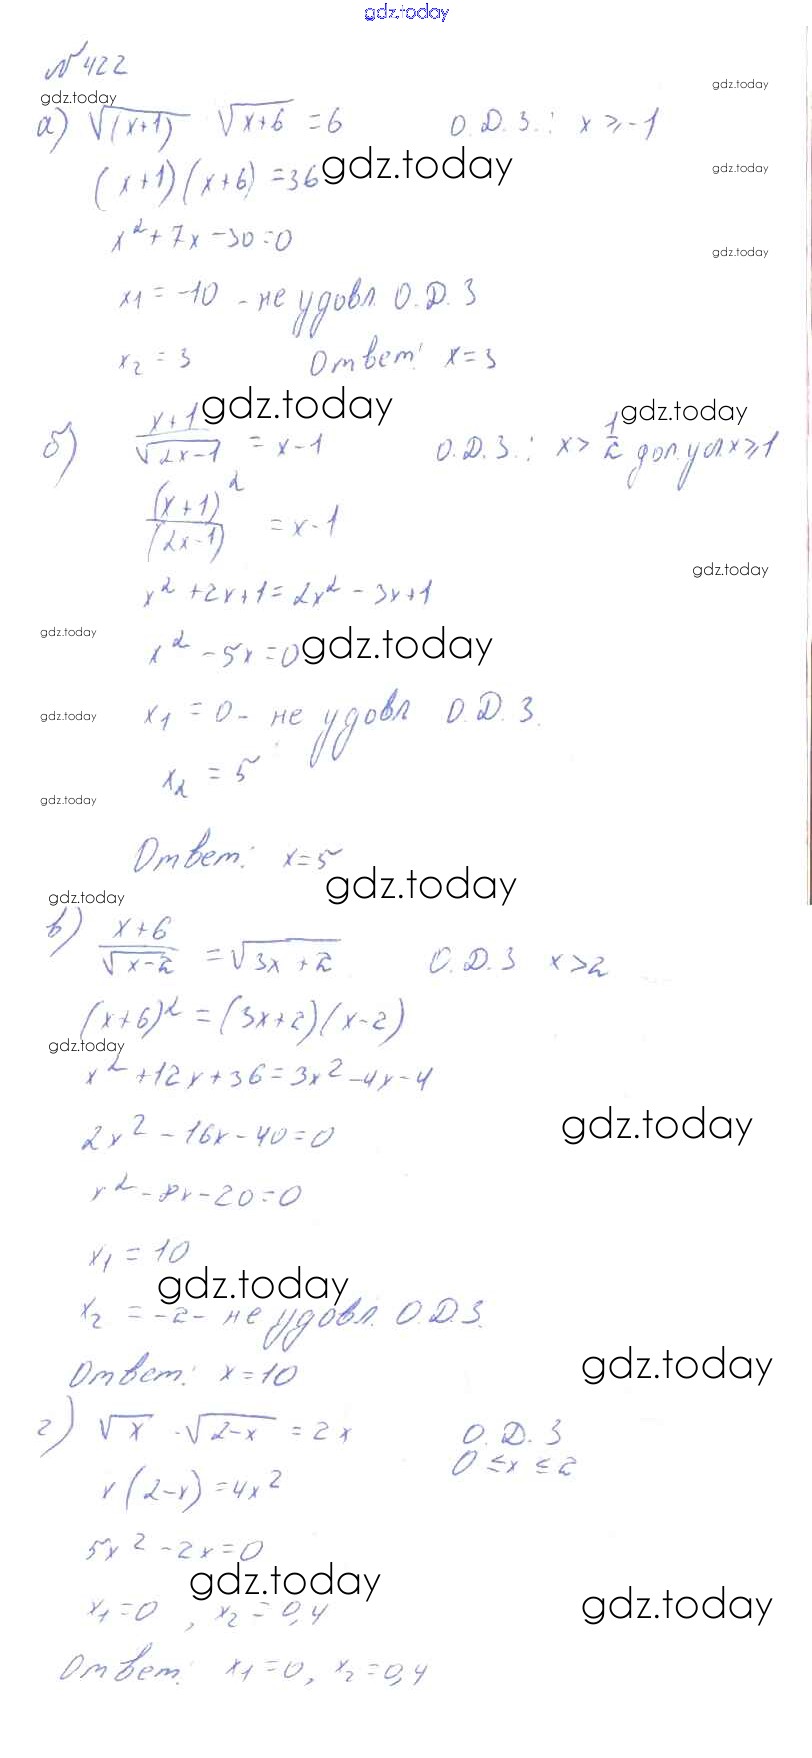 gdz.today
№422
gdz.today
gdz.today
а) √(x+1) √x+6 = 6 О.Д.З.: x ≥ -1
(x+1)(x+6) = 36 gdz.today
gdz.today
x² + 7x - 30 = 0
gdz.today
x₁ = -10 - не удовл. О.Д.З
x₂ = 3 Ответ: x = 3
gdz.today
gdz.today
б) x+1/√2x-1 = x-1 О.Д.З.: x > 1/2 доп.усл. x ≥ 1
(x+1)²/(2x-1) = x-1
gdz.today
x² + 2x + 1 = 2x² - 3x + 1
gdz.today
x² - 5x = 0 gdz.today
gdz.today
x₁ = 0 - не удовл О.Д.З.
x₂ = 5
gdz.today
Ответ: x = 5
gdz.today
gdz.today
в) x+6/√x-2 = √3x+2 О.Д.З x > 2
(x+6)² = (3x+2)(x-2)
gdz.today
x² + 12x + 36 = 3x² - 4x - 4
2x² - 16x - 40 = 0 gdz.today
x² - 8x - 20 = 0
x₁ = 10
gdz.today
x₂ = -2 - не удовл. О.Д.З.
gdz.today
Ответ: x = 10
г) √x · √2-x = 2x О.Д.З
0 ≤ x ≤ 2
x(2-x) = 4x²
5x² - 2x = 0
gdz.today
gdz.today
x₁ = 0 , x₂ = 0,4
Ответ: x₁ = 0, x₂ = 0,4